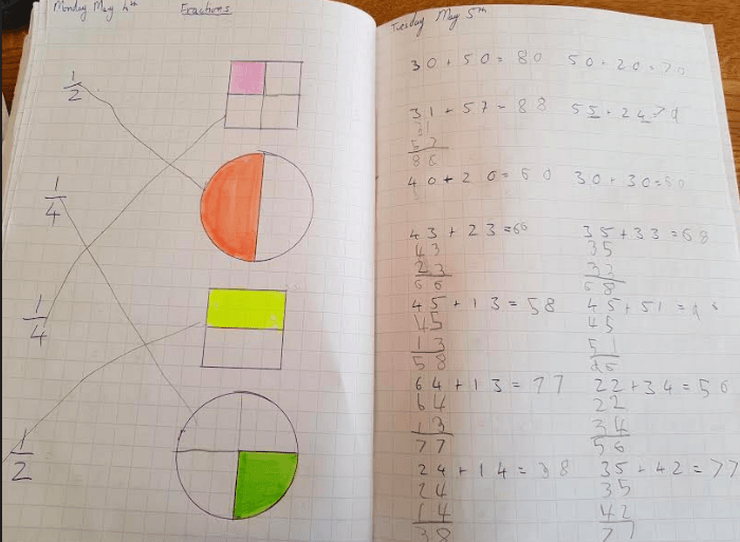 Monday May 4th Fractions
1/2
1/4
1/4
1/2
Tuesday May 5th
30 + 50 = 80 50 + 20 = 70
31 + 57 = 88 55 + 24
31
57
88
40 + 20 = 60 30 + 30 = 60
43 + 23 = 66 35 + 33 = 68
43 35
23 33
66 68
45 + 13 = 58 45 + 51 =
45 45
13 51
58
64 + 13 = 77 22 + 34 = 56
64 22
13 34
77 56
24 + 14 = 38 35 + 42 = 77
24 35
14 42
38 77